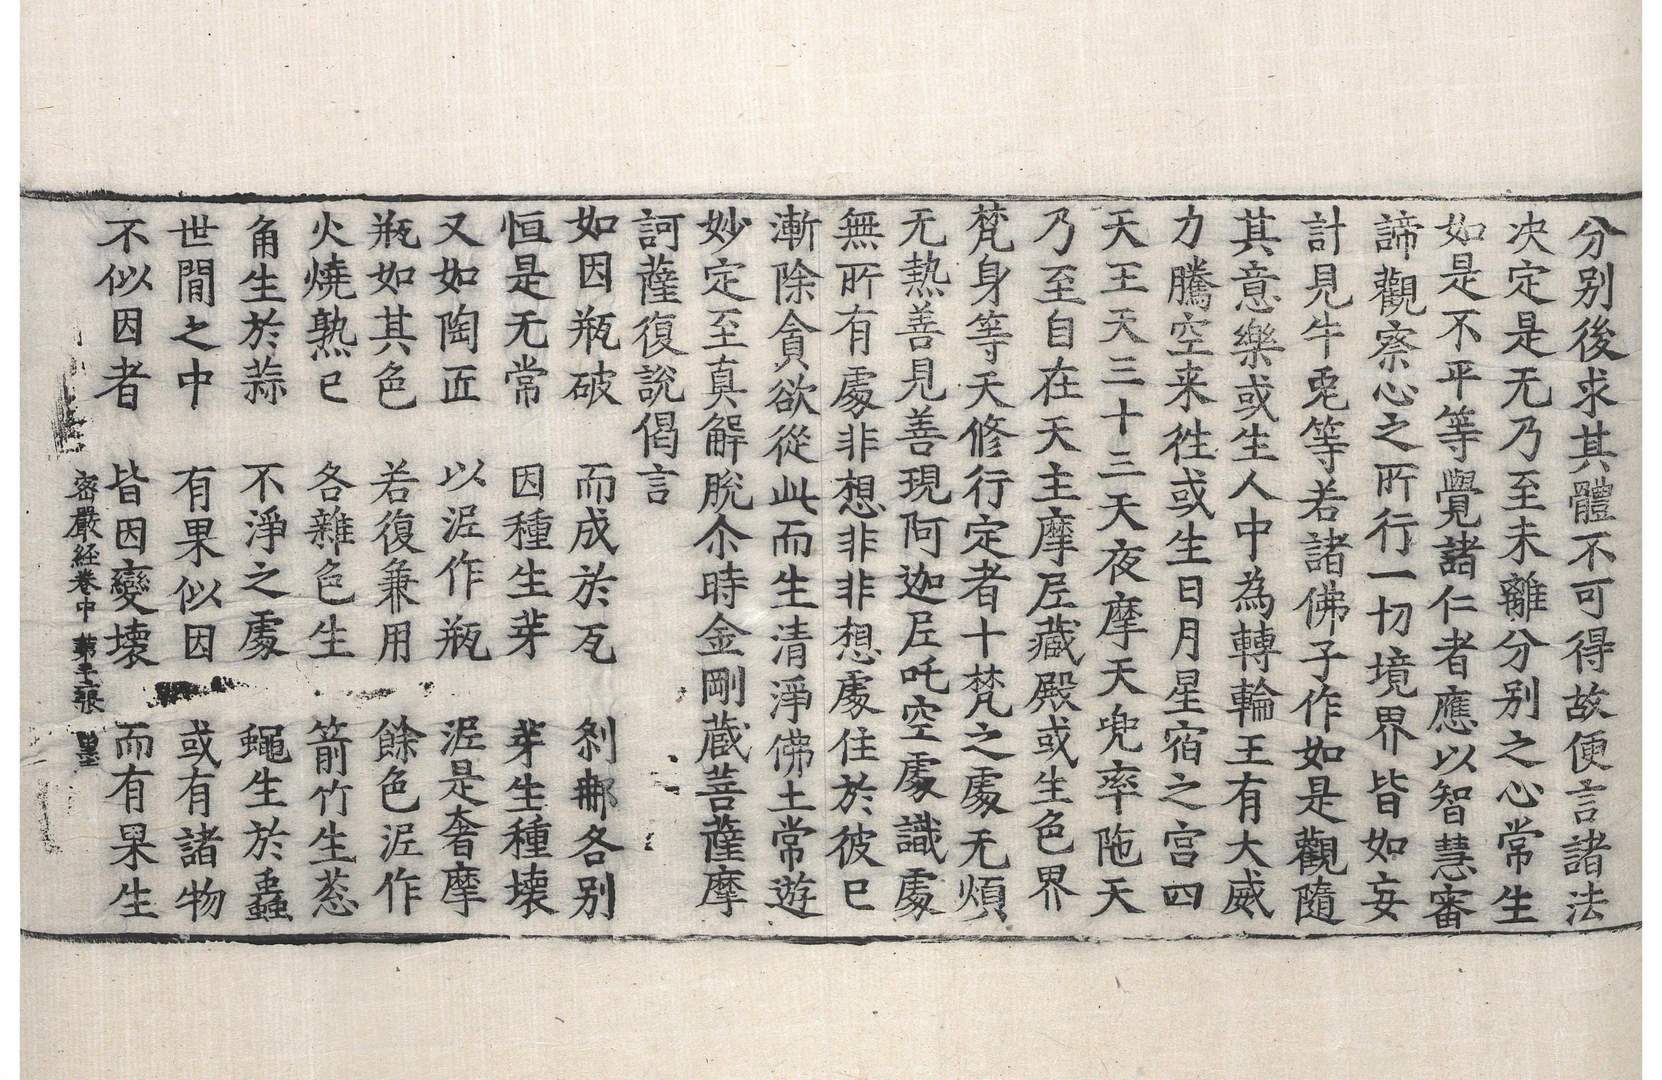 分别後求其體不可得故便言諸法
决定是无乃至未離分别之心常生
如是不平等覺諸仁者應以智慧審
諦觀察心之所行一切境界皆如妄
計見牛兎等若諸佛子作如是觀隨
其意樂或生人中為轉輪王有大威
力騰空来徃或生日月星宿之宫四
天王天三十三天夜摩天兜率陁天
乃至自在天主摩层藏殿或生色界
梵身等天修行定者十梵之處无煩
无熱善見善現阿迦层吒空處識處
無所有處非想非非想處住於彼已
漸除貪欲從此而生清淨佛土常遊
妙定至真解脫尒時金剛蔵菩薩摩
訶薩復說偈言
如因瓶破 而成於瓦 刹那各别
恒是无常 因種生芽 芽生種壊
又如陶匠 以泥作瓶 泥是奢摩
瓶如其色 若復兼用 餘色泥作
火燒熟已 各雜色生 箭竹生葱
角生於蒜 不淨之處 蠅生於蟲
世間之中 有果似因 或有諸物
不似因者 皆因變壊 而有果生
密嚴經卷中 第 張